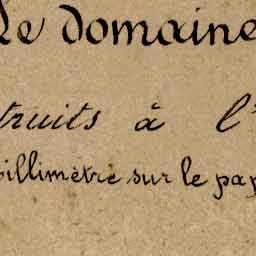 le domaine
truits à l'
illimètre sur le pap